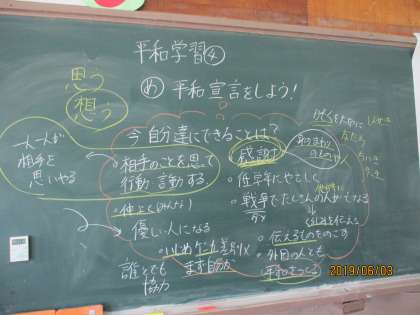 平和学習④
思う
想う
め 平和宣言をしよう!
今自分達にできることは?
一人一人が
相手を
思いやる
・相手のことを思って
行動 言動する
・仲よく(みんな)
優しい人になる
・いじめ
まず自分が
誰とも
協力
感謝
・低学年にやさしく
・戦争でたくさんの人がなくなる
・伝えるものをのこす
・外国の人とも
平和をつくる
2019/06/03